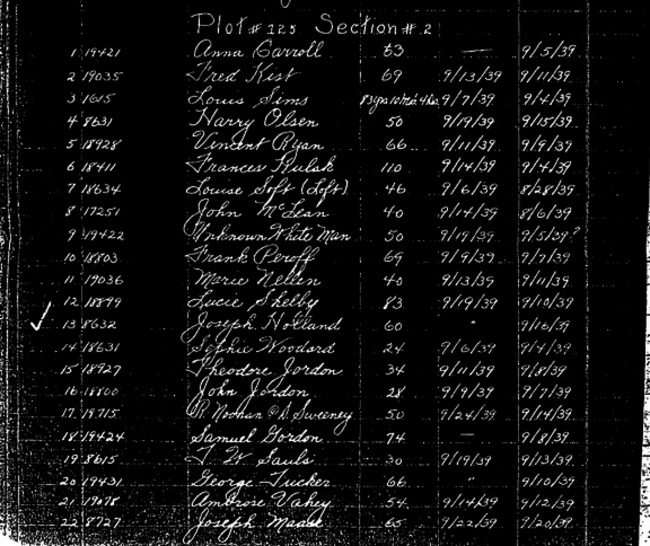 Plot # 125 Section # 2
1 19421 Anna Carroll 53 — 9/5/39
2 19035 Fred Kist 69 9/13/39 9/11/39
3 1615 Louis Sims 83yrs 9/7/39 9/4/39
4 8631 Harry Olsen 50 9/19/39 9/15/39
5 18928 Vincent Ryan 66 9/11/39 9/9/39
6 18411 Frances Kulak 110 9/14/39 9/4/39
7 18634 Louise Soft (Loft) 46 9/6/39 8/28/39
8 17251 John McLean 40 9/14/39 8/6/39
9 19422 Unknown White Man 50 9/19/39 9/5/39?
10 18803 Frank Peroff 69 9/9/39 9/7/39
11 19036 Marie Nellen 40 9/13/39 9/11/39
12 18899 Lucie Shelby 83 9/19/39 9/10/39
13 8632 Joseph Holland 60 " 9/16/39
14 18631 Sophie Woodard 24 9/6/39 9/4/39
15 18927 Theodore Jordon 34 9/11/39 9/8/39
16 18800 John Jordon 28 9/9/39 9/7/39
17 19715 R. Noonan @ D. Sweeney 50 9/24/39 9/14/39
18 19424 Samuel Gordon 74 — 9/8/39
19 8615 T. W. Sauls 30 9/19/39 9/13/39
20 19431 George Tucker 66 " 9/10/39
21 19078 Ambrose Vahey 54 9/14/39 9/12/39
22 8727 Joseph 65 9/22/39 9/20/39